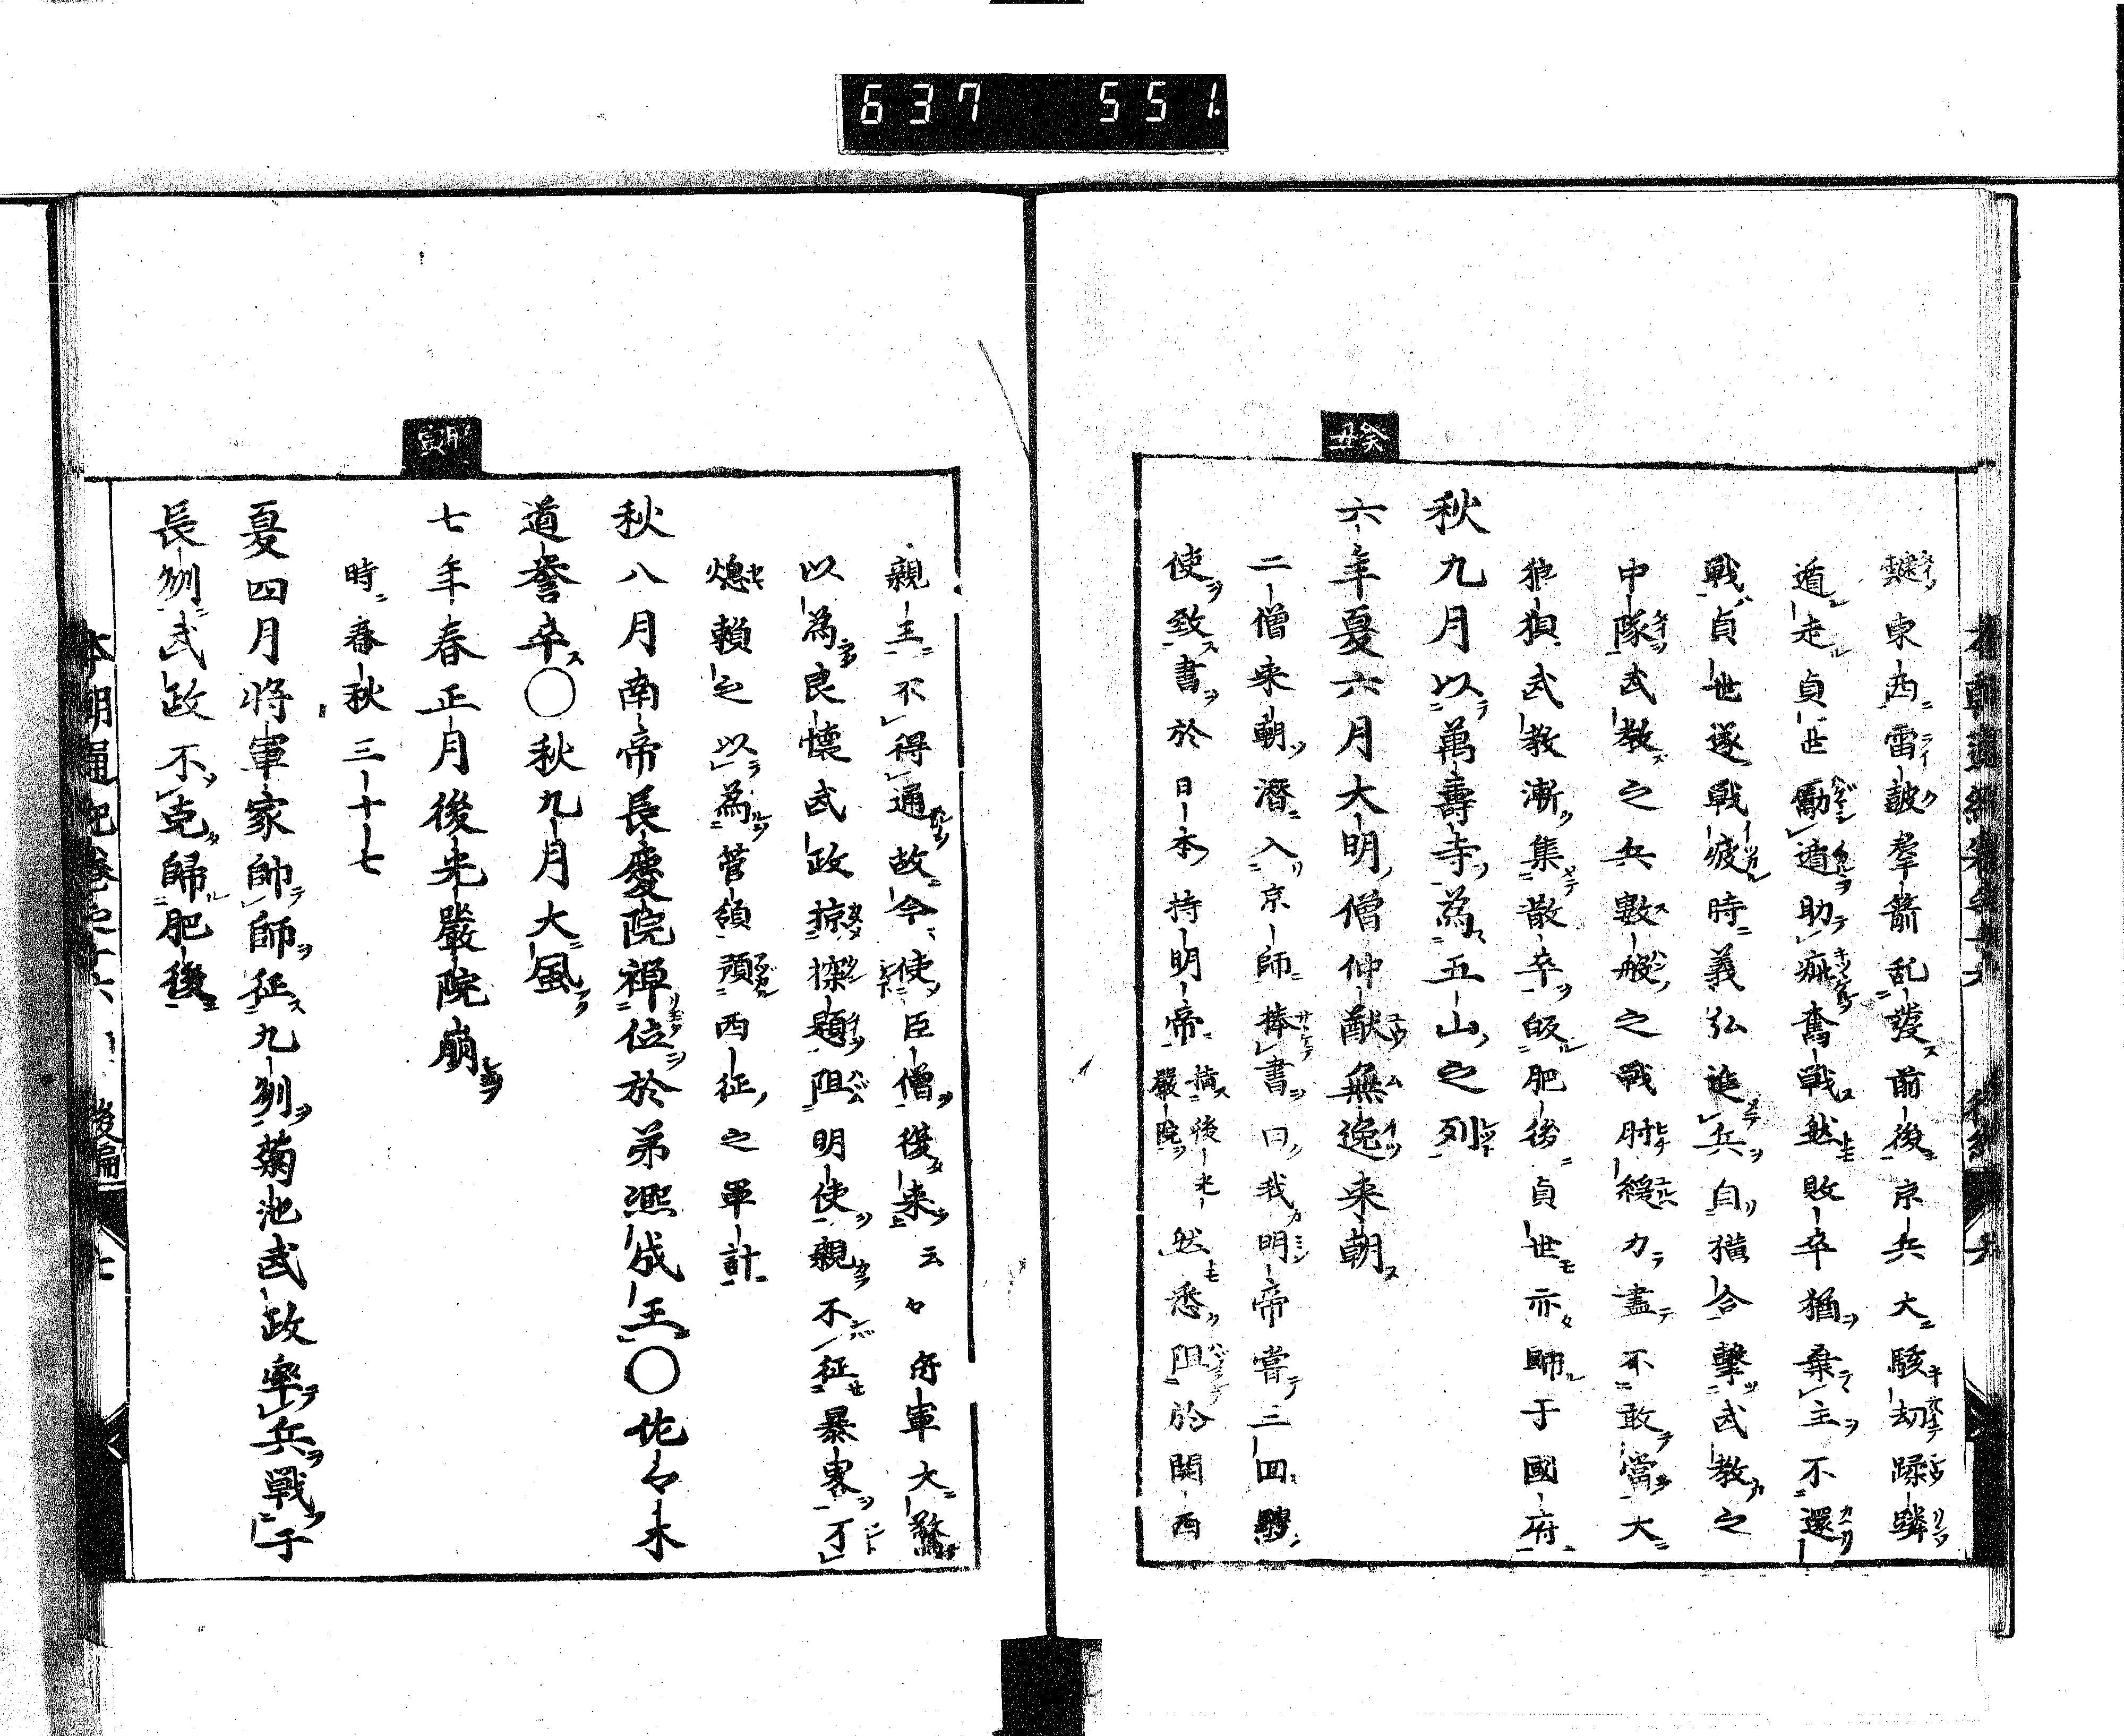 637 551
靆東西雷鼓羣箭乱發前後京兵大駭劫蹂躪
遁走貞世勵遁助疵奮戰然敗卒猶棄主不還
戰貞世遂戰疲時義弘進兵自横合擊武教之
中隊武教之兵數般之戰肘緩力盡不敢當大
狼狽武教漸集散卒皈肥後貞世亦歸于國府
秋九月以萬壽寺為五山之列
癸丑
六年夏六月大明僧仲猷無逸來朝
二僧来朝潜入京師捧書曰我明帝嘗三回騁
使致書於日本持明帝 指後光嚴院 然悉阻於関西
親王不得通故今使臣僧傑来云々府軍大驚
以為良懷武政掠探題阻明使親不征暴寇了
熄頼之以為管領頭西征之軍計
秋八月南帝長慶院禅位於弟凞成王〇佐々木
道誉卒〇秋九月大風
甲寅
七年春正月後光嚴院崩
時春秋三十七
夏四月将軍家帥師征九州菊池武政率兵戰于
長州武政不克歸肥後
本朝通紀卷之十六 後編 七